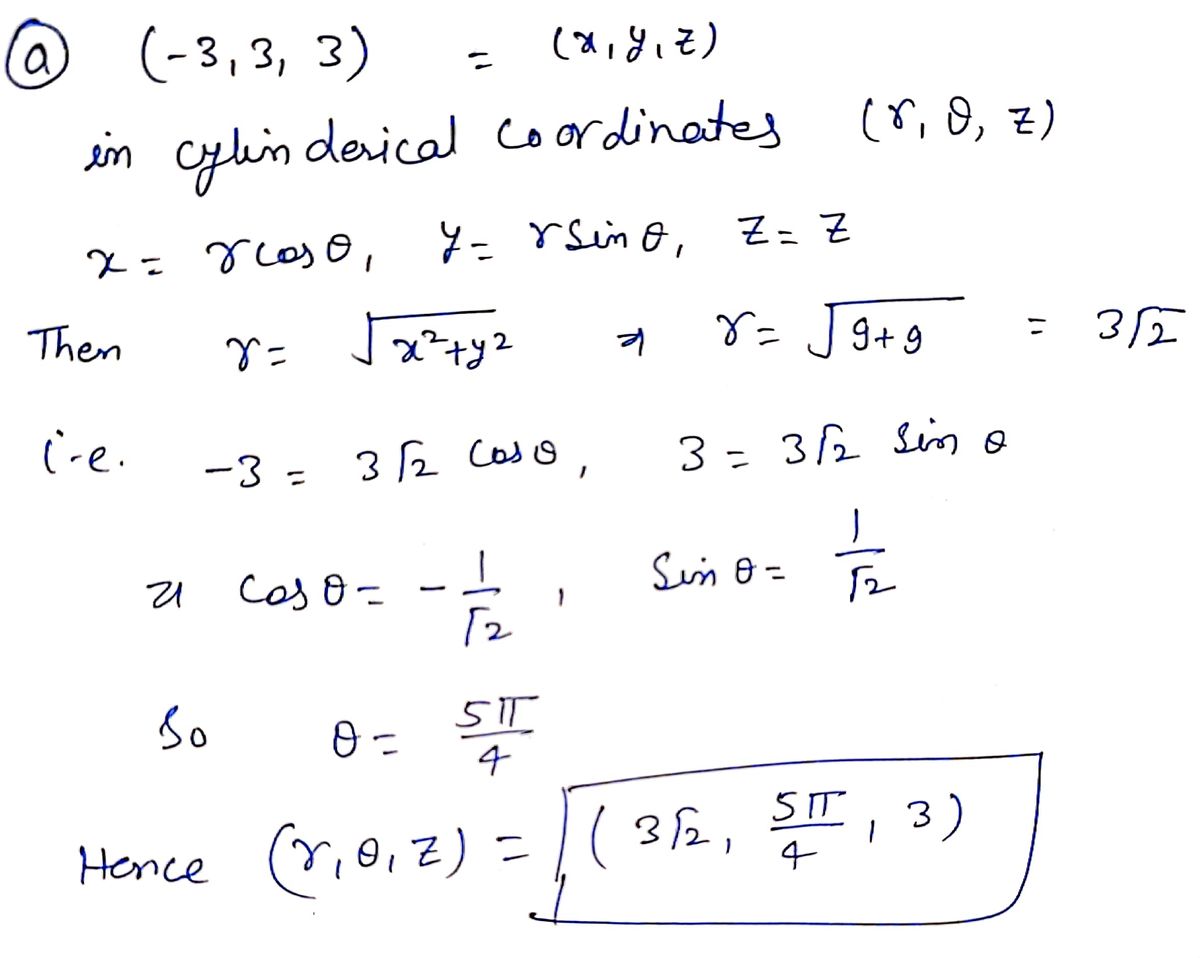 ⓐ (-3, 3, 3) = (x, y, z)
in cylinderical coordinates (r, θ, z)
x = r cos θ, y = r sin θ, z = z
Then r = √(x²+y²) ⇒ r = √(9+9) = 3√2
i.e. -3 = 3√2 cos θ, 3 = 3√2 sin θ
⇒ cos θ = -1/√2, sin θ = 1/√2
So θ = 5π/4
Hence (r, θ, z) = (3√2, 5π/4, 3)